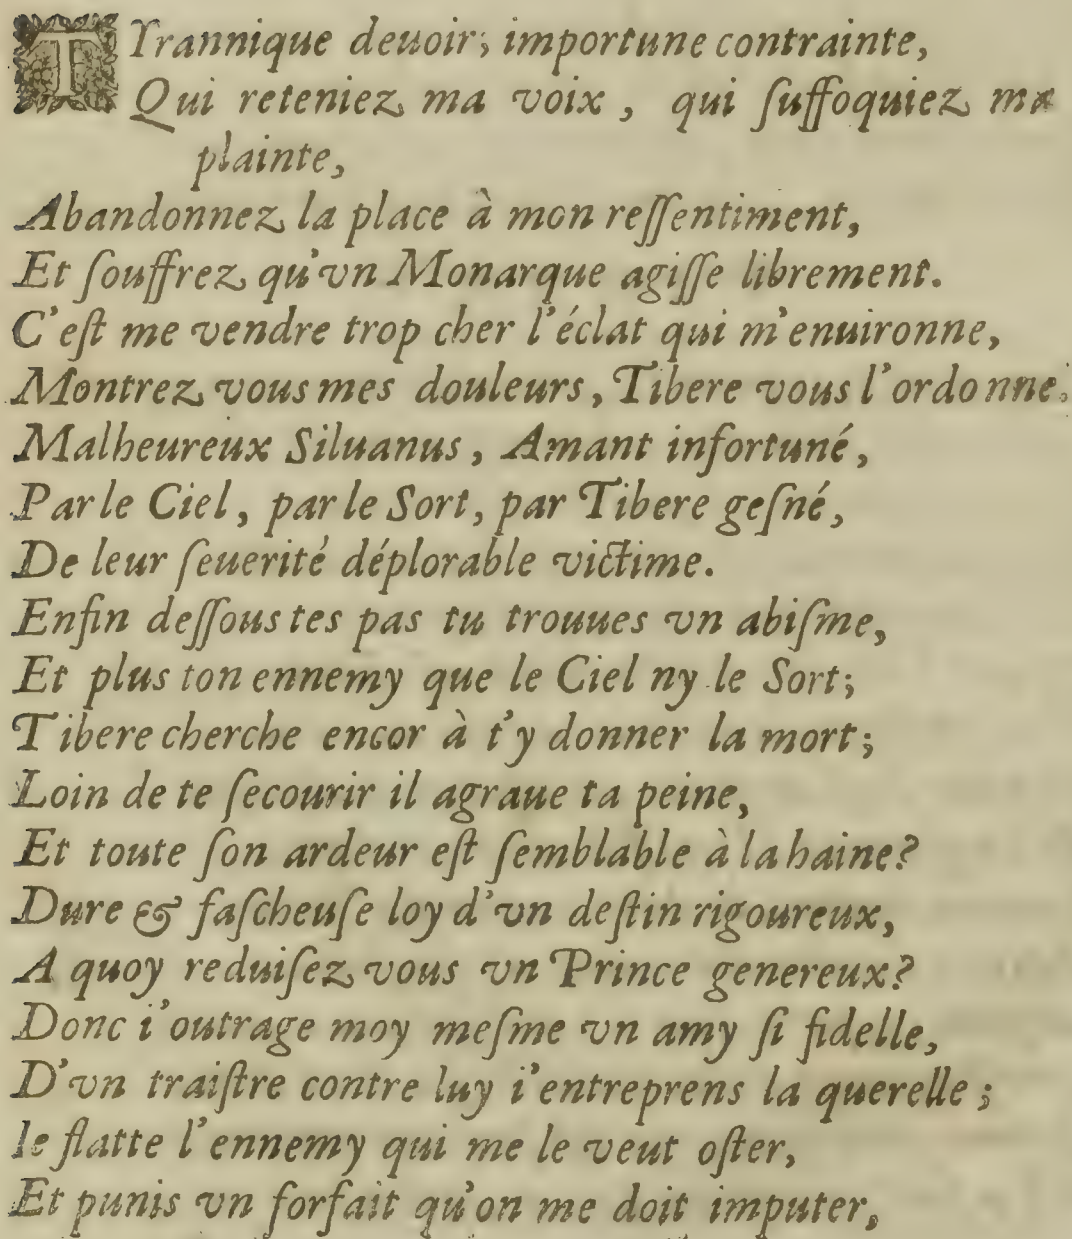 TYrannique deuoir; importune contrainte,
Qui reteniez ma voix, qui ſuffoquiez ma
plainte,
Abandonnez la place à mon reſſentiment,
Et ſouffrez qu'vn Monarque agiſſe librement.
C'eſt me vendre trop cher l'éclat qui m'enuironne,
Montrez vous mes douleurs, Tibere vous l'ordonne.
Malheureux Siluanus, Amant infortuné,
Par le Ciel, par le Sort, par Tibere geſné,
De leur ſeuerité déplorable victime.
Enfin deſſous tes pas tu trouues vn abiſme,
Et plus ton ennemy que le Ciel ny le Sort;
Tibere cherche encor à t'y donner la mort;
Loin de te ſecourir il agraue ta peine,
Et toute ſon ardeur eſt ſemblable à la haine?
Dure & faſcheuſe loy d'vn deſtin rigoureux,
A quoy reduiſez vous vn Prince genereux?
Donc i'outrage moy meſme vn amy ſi fidelle,
D'vn traiſtre contre luy i'entreprens la querelle;
Ie flatte l'ennemy qui me le veut oſter,
Et punis vn forfait qu'on me doit imputer,